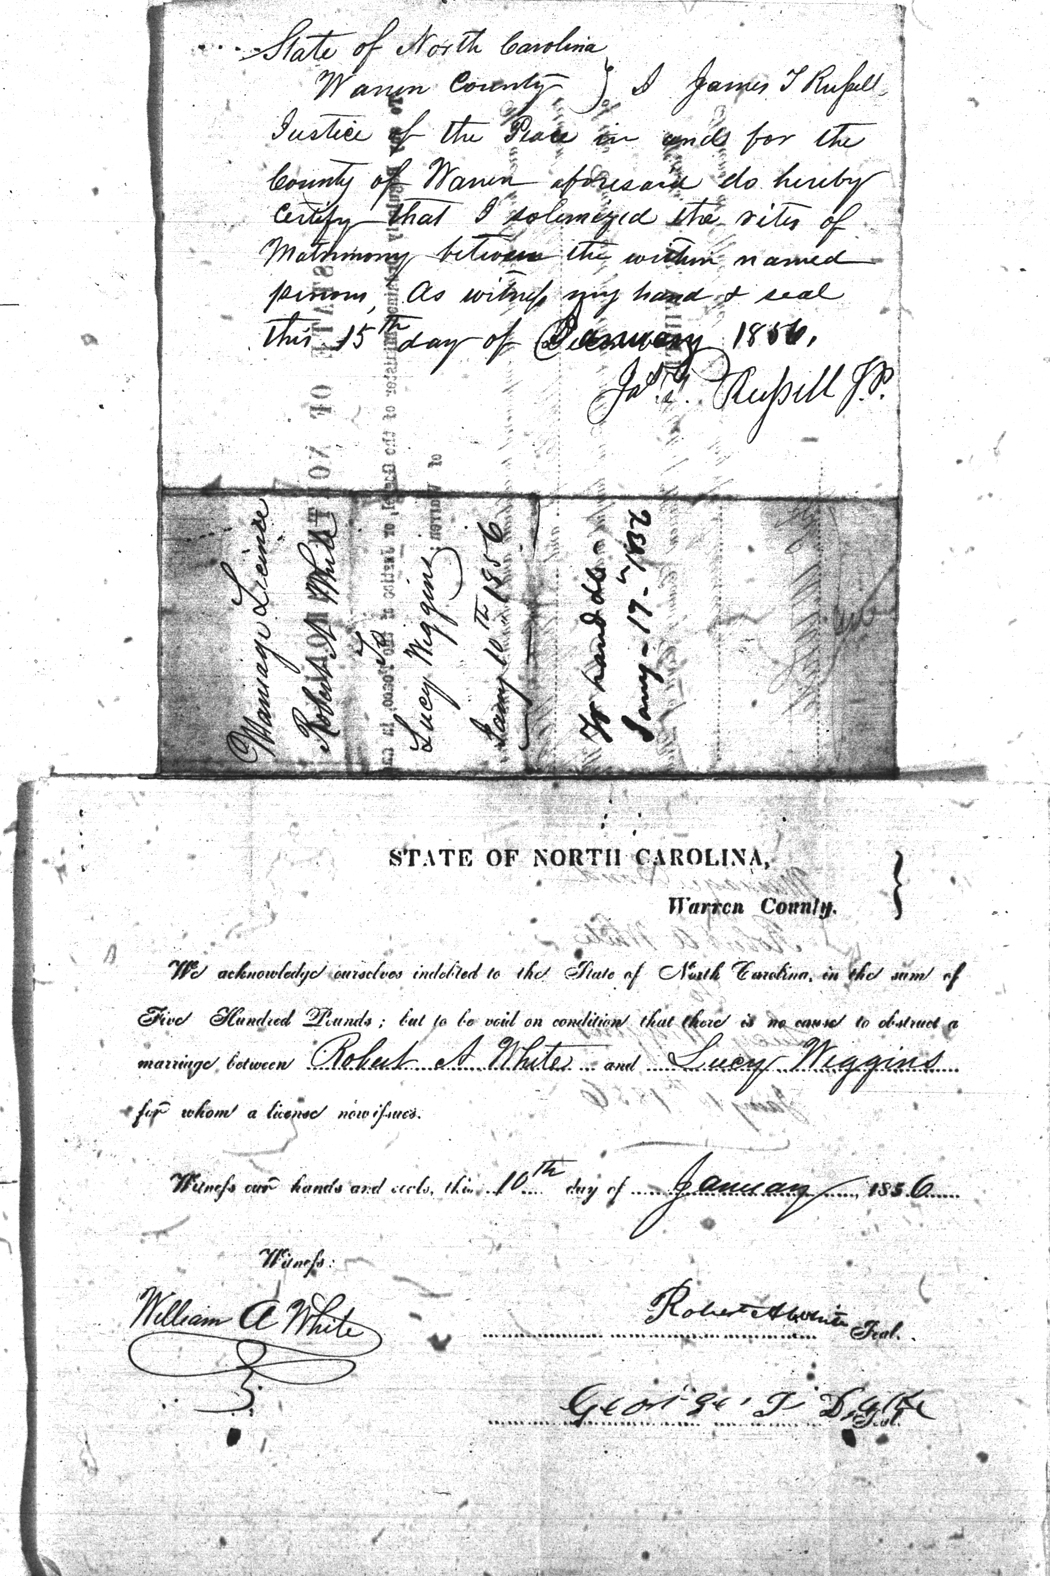 State of North Carolina
Warren County } I James T Russell
Justice of the Peace in and for the
County of Warren aforesaid do hereby
certify that I solemnized the rites of
Matrimony between the within named
persons, As witness my hand & seal
this 15th day of January 1856.
Jas. T. Russell J.P.
Marriage License
Robert A White
To
Lucy Wiggins
Jany 10th 1856
To hand
Jany 1856
STATE OF NORTH CAROLINA,
Warren County. }
We acknowledge ourselves indebted to the State of North Carolina, in the sum of
Five Hundred Pounds; but to be void on condition that there is no cause to obstruct a
marriage between Robert A White and Lucy Wiggins
for whom a license now issues.
Witness our hands and seals, this 10th day of January, 1856
Witness:
William A White
Robert A White Seal.
George T Seal.